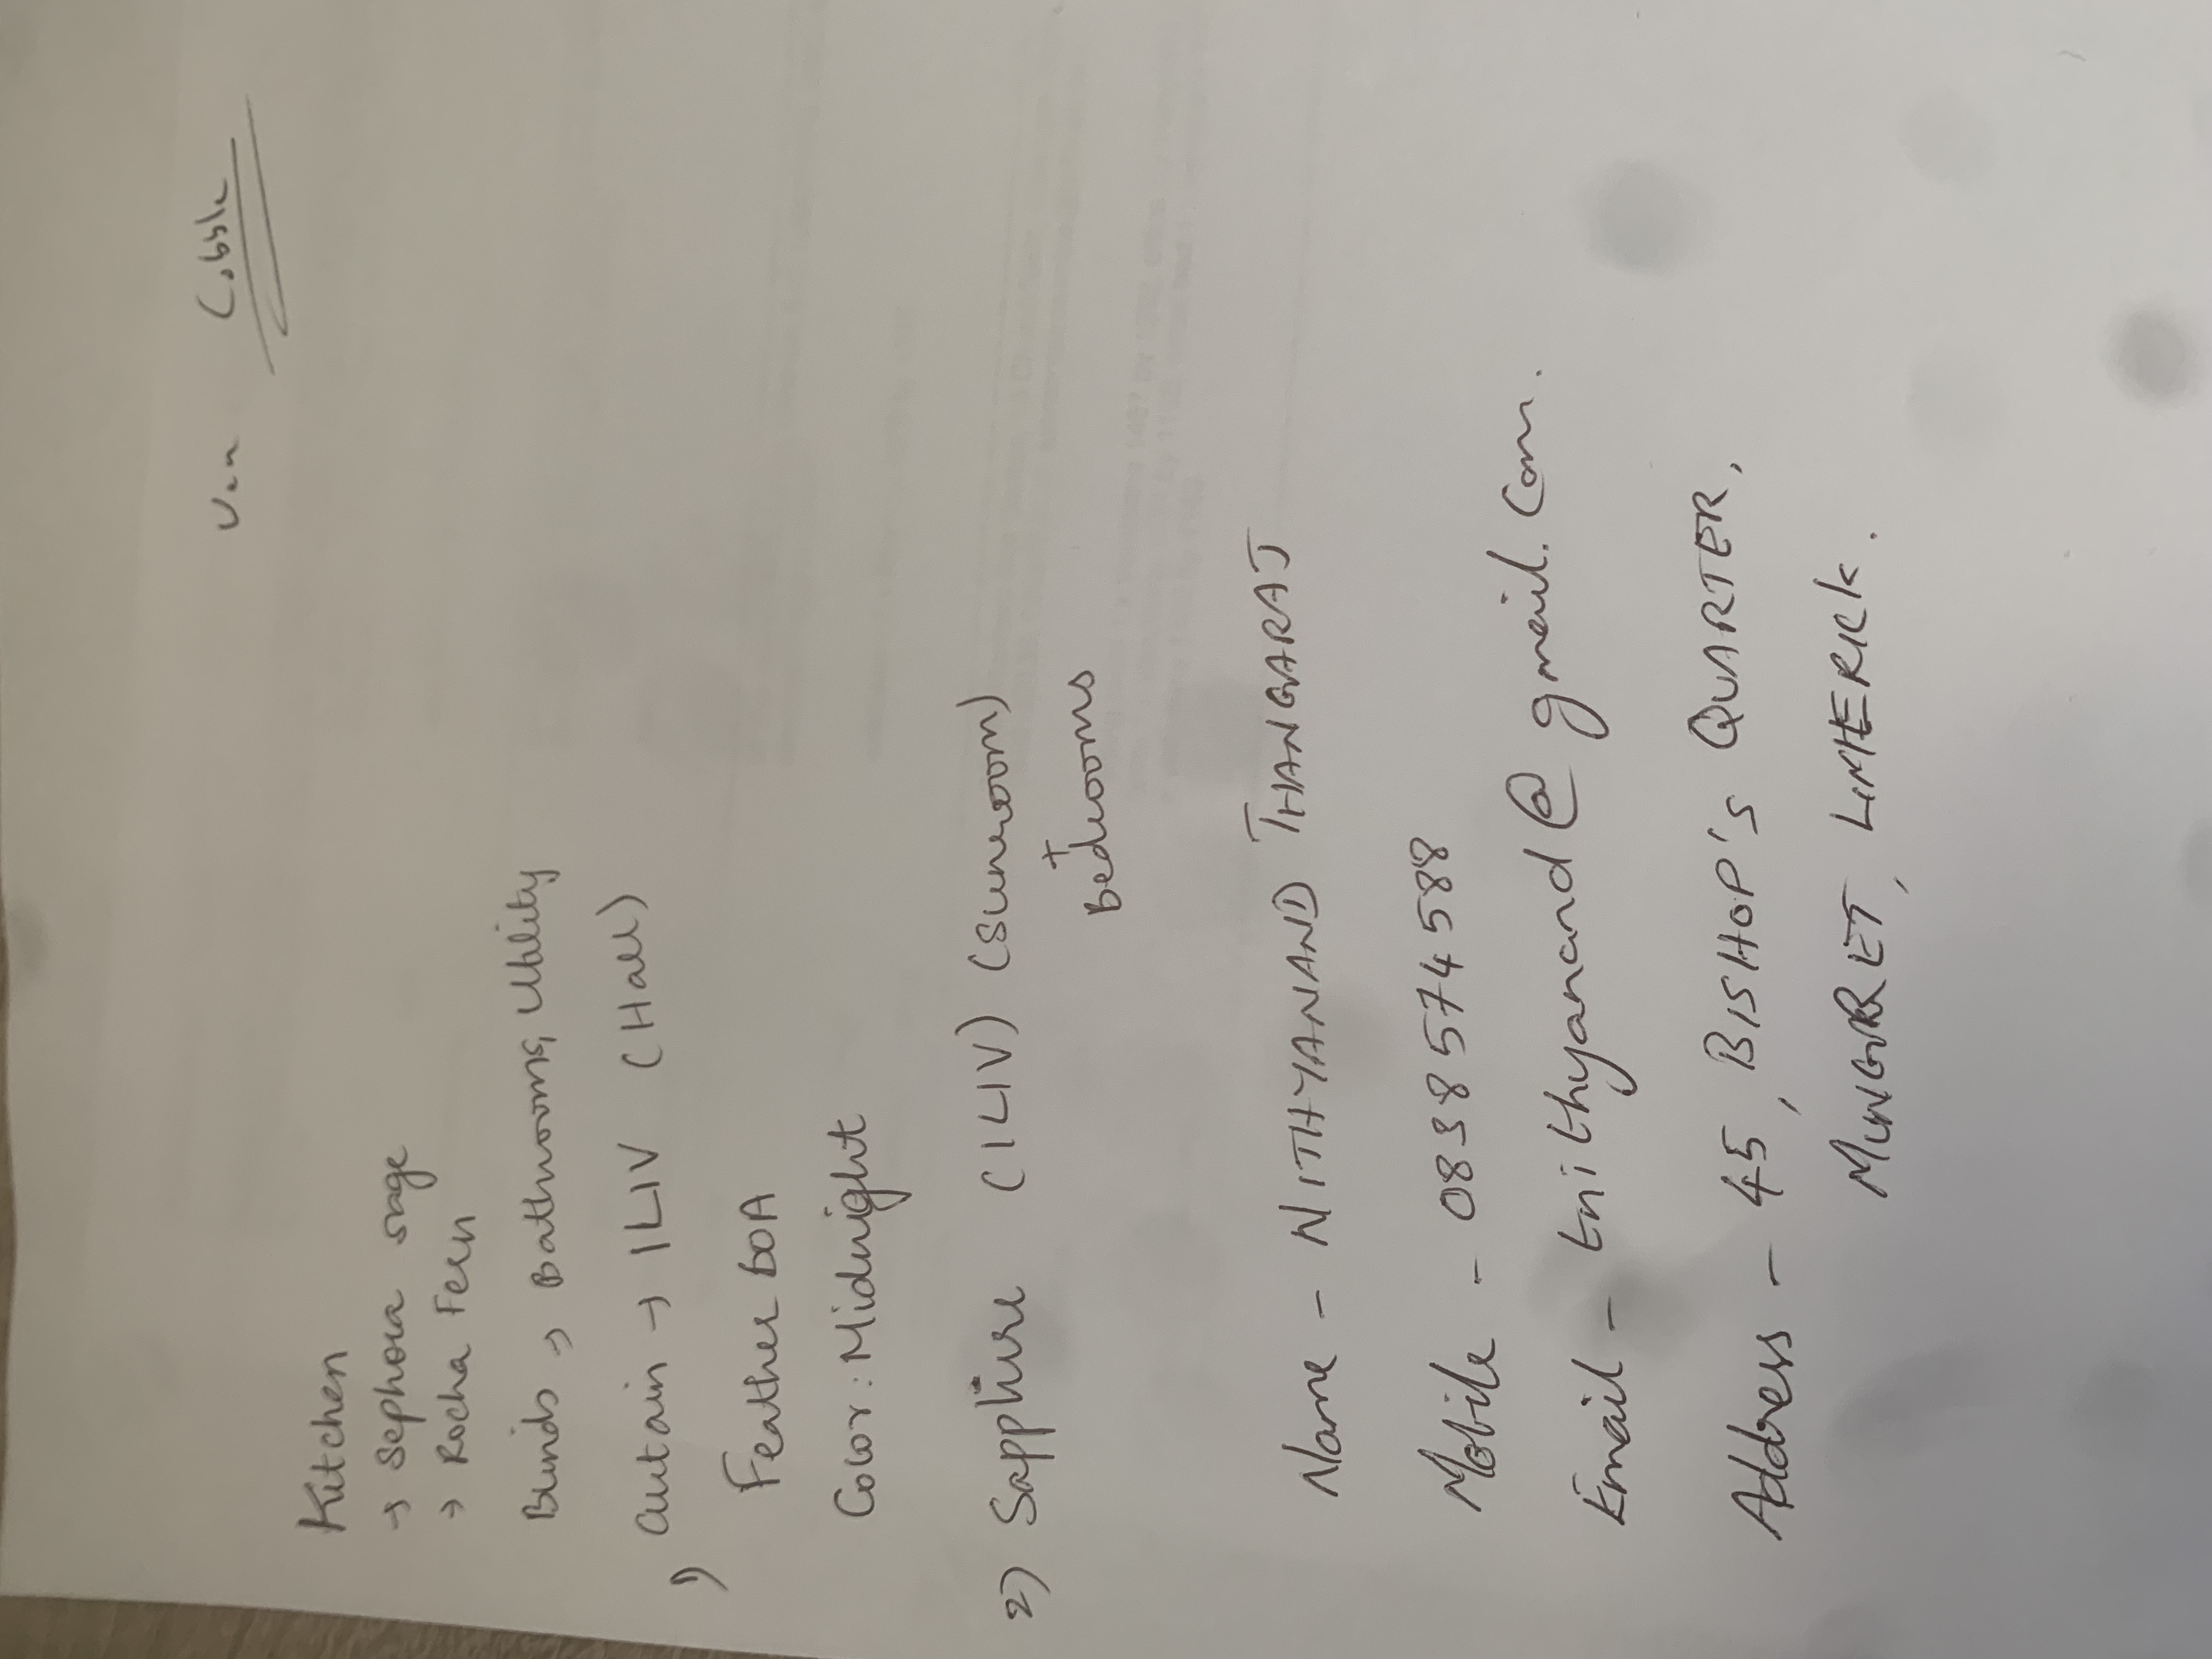 Van Cobble
Kitchen
→ Sephora sage
→ Rocha Fern
Blinds → Bathrooms, Utility
1) Curtain → ILIV (Hall)
Feather BOA
Color: Midnight
2) Sapphire (ILIV) (Sunroom)
+
bedrooms
Name - NITHYANAND THANGARAJ
Mobile - 0838574588
Email - tnithyanand@gmail.com.
Address - 45, BISHOP'S QUARTER,
MUNGRET, LIMERICK.